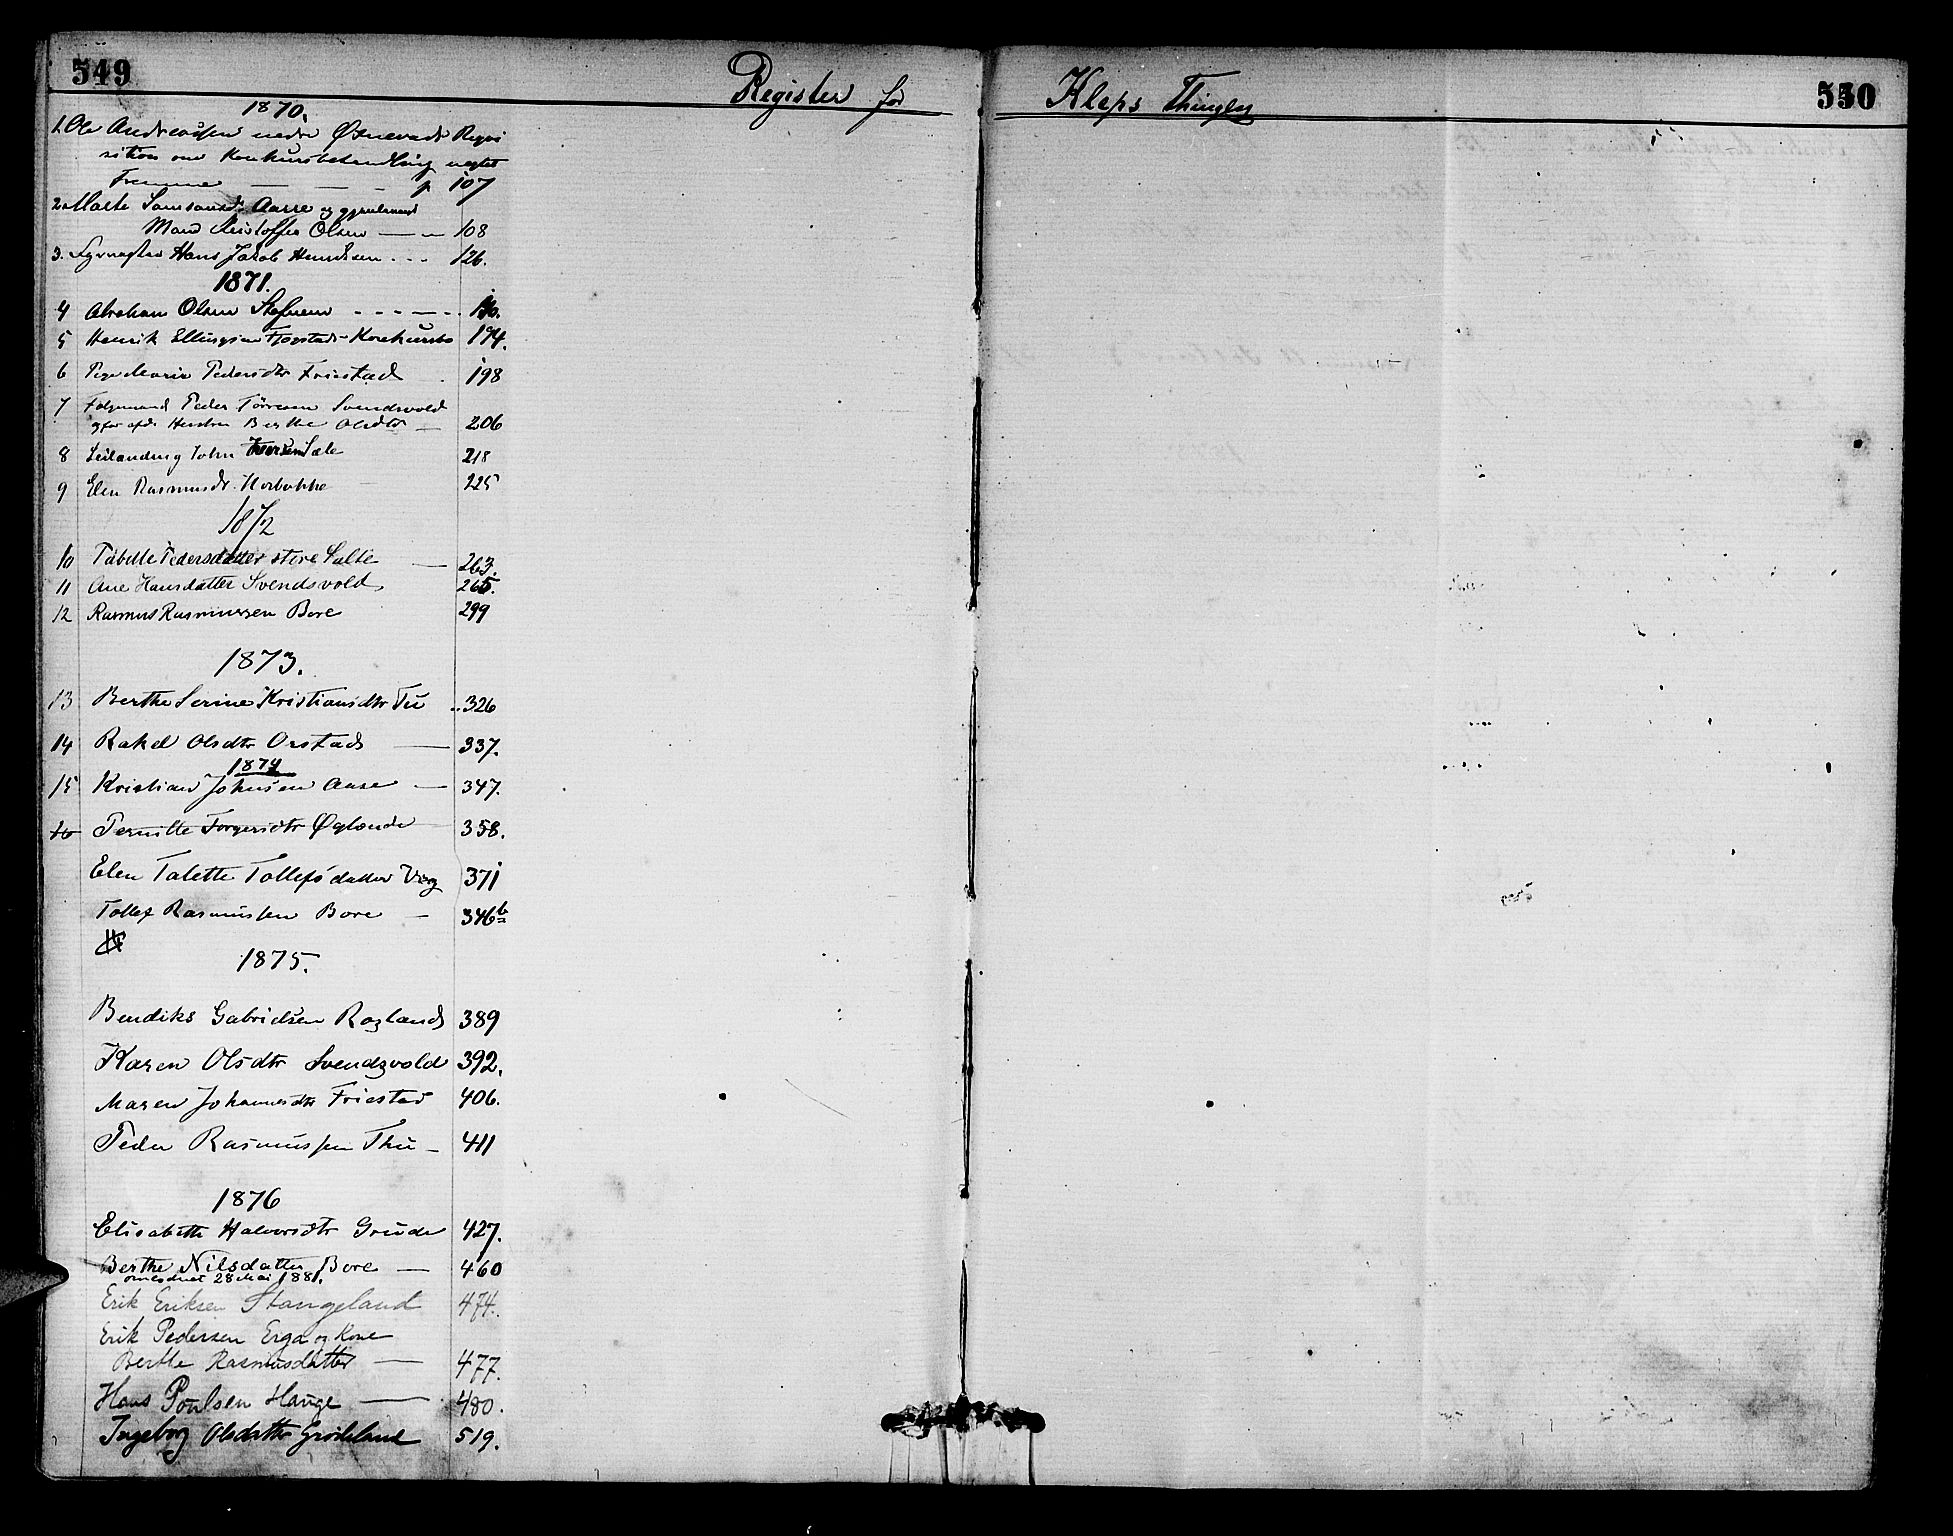 549
Register for Kleps Thinglag
550
1870.
1. Ole Andreassen nedre Øsnevads Reqvi
sition om Konkursbehandling nægtet
Fremme — — — p 107
2. Marte Samsonsdr Aarre og gjenlevend
Mand Kristoffer Olsen — — 108
3. Hans Jakob Hendksen . . . 126.
1871.
4 Abraham Olsen
5 Henrik Ellingsen Fjogstads Konkursbo 194.
6 Pedersdtr Friestad . 198
7 Folgemand Peder Tørresen Svendsvold
og før afdr Hustru Berthe Olsdtr — 206
8 Leilænding John Iversen Sæle 218
9 Elen Rasmusdr. Horbakke 225
1872
10 Tabitte Pedersdatter store Salte — 263.
11 Ane Hansdatter Svendsvold 265.
12 Rasmus Rasmussen Bore 299
1873.
13 Berthe Serine Kristiansdtr Tu .. 326
14 Rakel Olsdtr Orstad — 337.
1874
15 Kristian Johnsen Aase — 347.
16 Pernille Torgersdtr Øgland 358.
Elen Talette Tollefsdatter Vig 371
Tollef Rasmussen Bore — 346b
1875.
Bendiks Gabrielsen Roglands 389
Karen Olsdtr Svendsvold 392.
Maren Johannesdtr Friestad 406.
Peder Rasmussen Thu — 411
1876
Elisabeth Halvorsdtr Grude 427.
Berthe Nilsdatter Bore — 460
omordnet 28 Mai 1881.
Erik Eriksen Stangeland 474.
Erik Pedersen Erga og Kone
Berthe Rasmusdatter — 477.
Hans Poulsen Hauge — 480.
Ingeborg Olsdatter Grødeland 519.